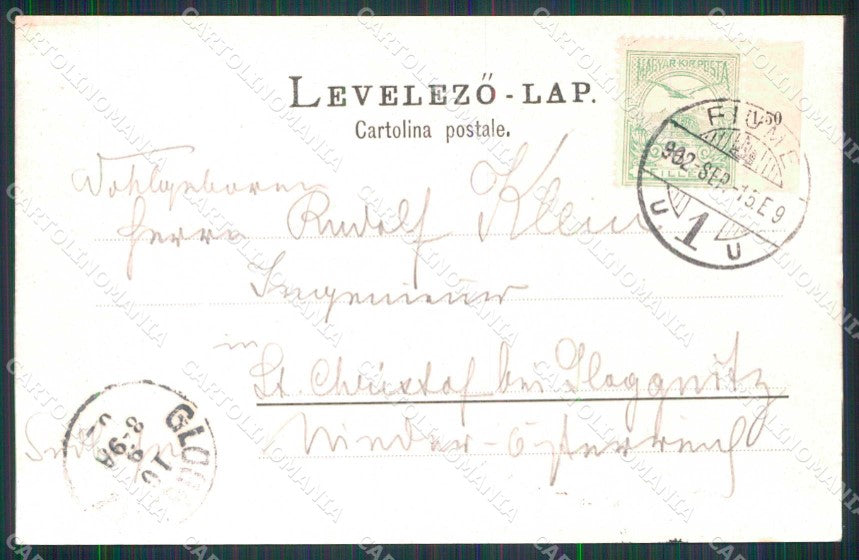 LEVELEZŐ-LAP.
Cartolina postale.
MAGYAR KIR. POSTA
FILLÉR
1.50
FIUME
902-SEP.-15.E9
U. 1 U
Wohlgeboren
Herrn Rudolf Klein
Ingenieur
in
St. Christof bei Gloggnitz
Nieder-Österreich
Südbahn
GLOGG
CARTOLINOMANIA